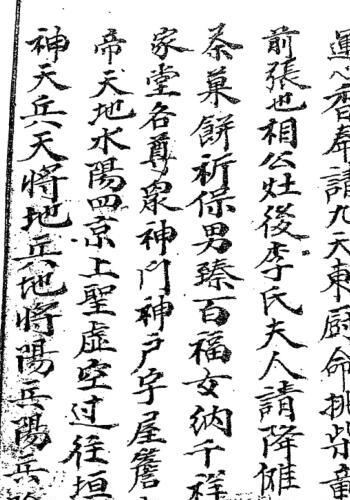 運心香奉請九天東厨命挑柴童
前張也相公灶後李氏夫人請降僊
茶菓餅祈保男臻百福女納千祥
家堂各尊眾神門神户字屋簷
帝天地水陽四京上聖虛空过往垣
神天兵天将地兵地将陽兵陽兵